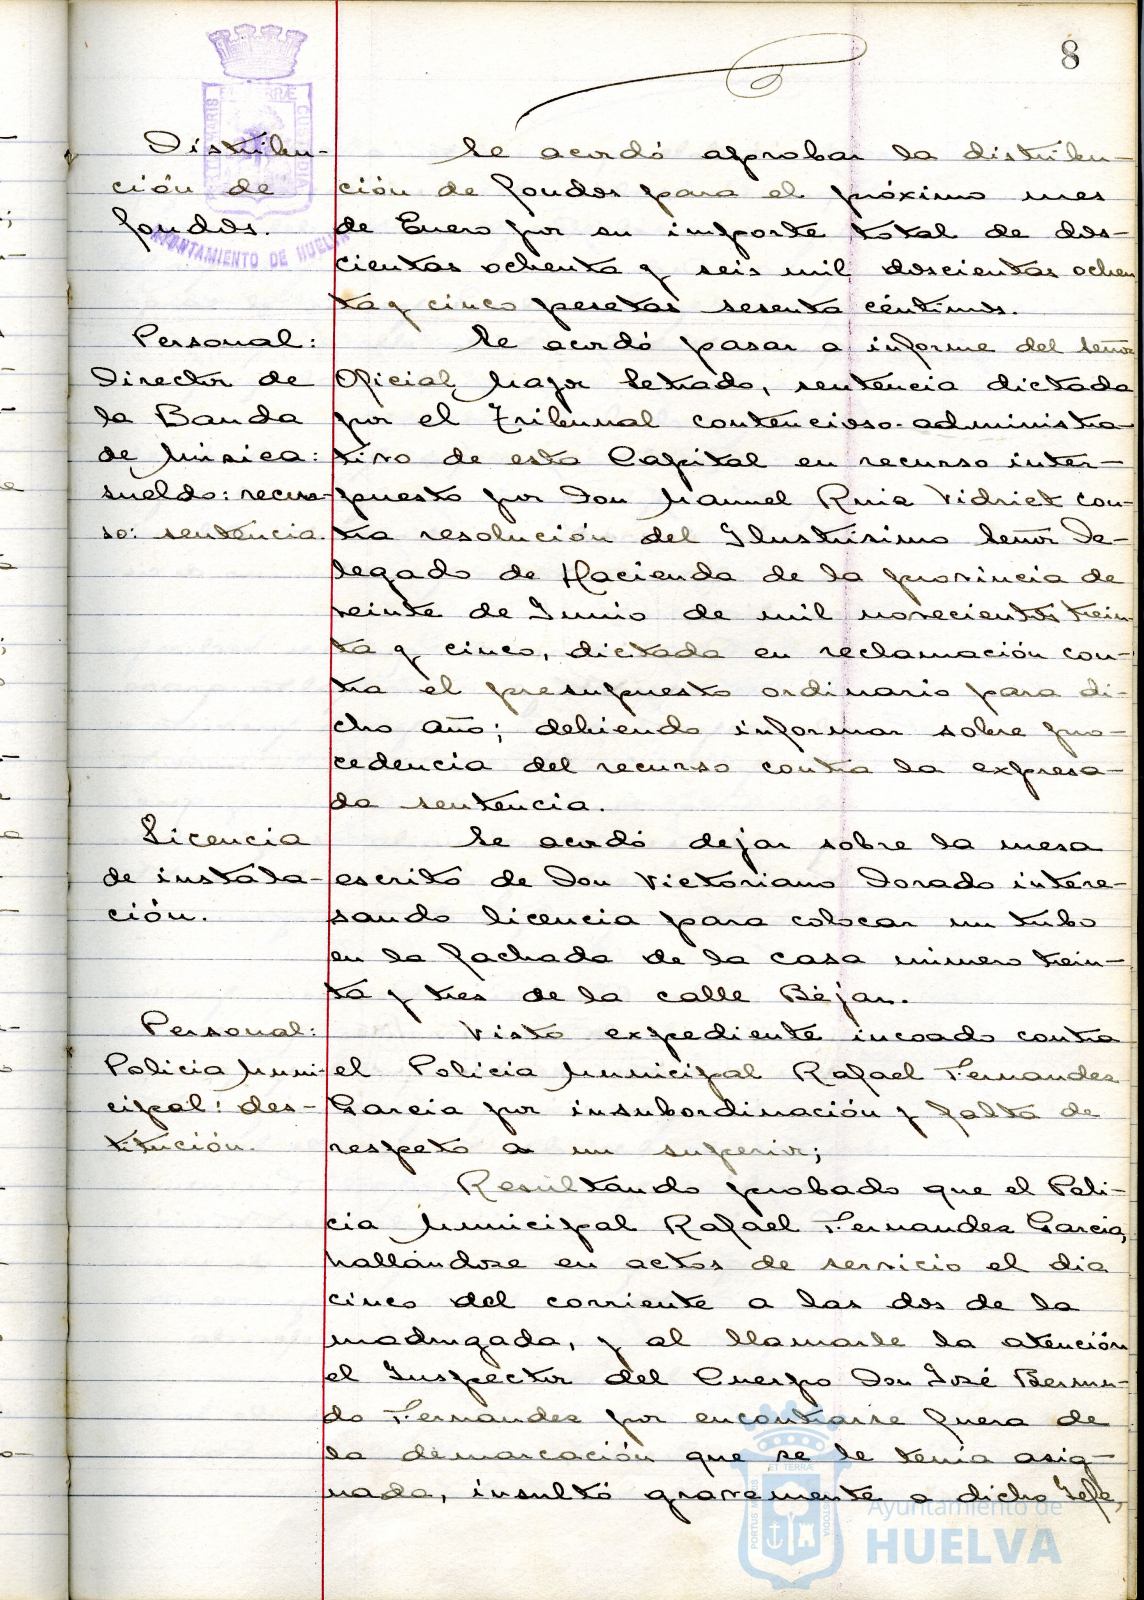 8
PORTUS MARIS ET TERRAE CUSTODIA
AYUNTAMIENTO DE HUELVA
Distribu-
ción de
fondos.
Se acordó aprobar la distribu-
ción de fondos para el próximo mes
de Enero por su importe total de dos-
cientas ochenta y seis mil doscientas ochen
ta y cinco pesetas sesenta céntimos.
Personal:
Director de
la Banda
de Música:
sueldo: recur-
so: sentencia
Se acordó pasar a informe del Señor
Oficial Mayor Letrado, sentencia dictada
por el Tribunal contencioso-administra-
tivo de esta Capital en recurso inter-
puesto por Don Manuel Ruiz Vidriet con-
tra resolución del Ilustrísimo Señor De-
legado de Hacienda de la provincia de
veinte de Junio de mil novecientos trein
ta y cinco, dictada en reclamación con-
tra el presupuesto ordinario para di-
cho año; debiendo informar sobre pro-
cedencia del recurso contra la expresa-
da sentencia.
Licencia
de instala-
ción.
Se acordó dejar sobre la mesa
escrito de Don Victoriano Dorado intere-
sando licencia para colocar un tubo
en la fachada de la casa número trein-
ta y tres de la calle Béjar.
Personal:
Policia Muni-
cipal: des-
titución.
Visto expediente incoado contra
el Policia Municipal Rafael Fernandez
Garcia por insubordinación y falta de
respeto a un superior;
Resultando probado que el Poli-
cia Municipal Rafael Fernandez Garcia,
hallándose en actos de servicio el dia
cinco del corriente a las dos de la
madrugada, y al llamarle la atención
el Inspector del Cuerpo Don José Bermu-
do Fernandez por encontrarse fuera de
la demarcación que se le tenía asig-
nada, insultó gravemente a dicho Jefe,
PORTUS MARIS ET TERRAE CUSTODIA
Ayuntamiento de
HUELVA